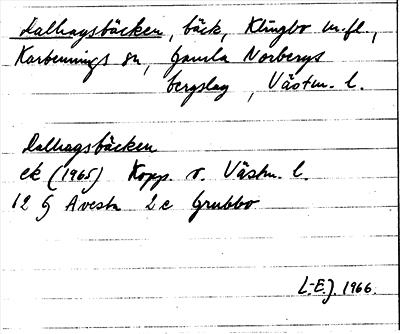 Dalhagsbäcken, bäck, Klingbo m.fl.,
Karbennings sn, Gamla Norbergs
bergslag, Västm. l.
Dalhagsbäcken
ek (1965) Kopp. o. Västm. l.
12 G Avesta 2c Grubbo
L-E.J. 1966.